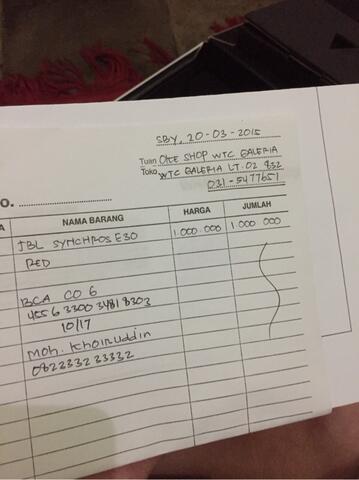 SBY, 20-03-2015
Tuan OKE SHOP WTC GALERIA
Toko WTC GALERIA LT.02 832
031-5477651
O. ..........
A NAMA BARANG HARGA JUMLAH
JBL SYNCHROS E30 1.000.000 1.000 000
RED
BCA CO 6
4556 3300 3481 8303
10/17
Moh. Khoiruddin
0822332 23332